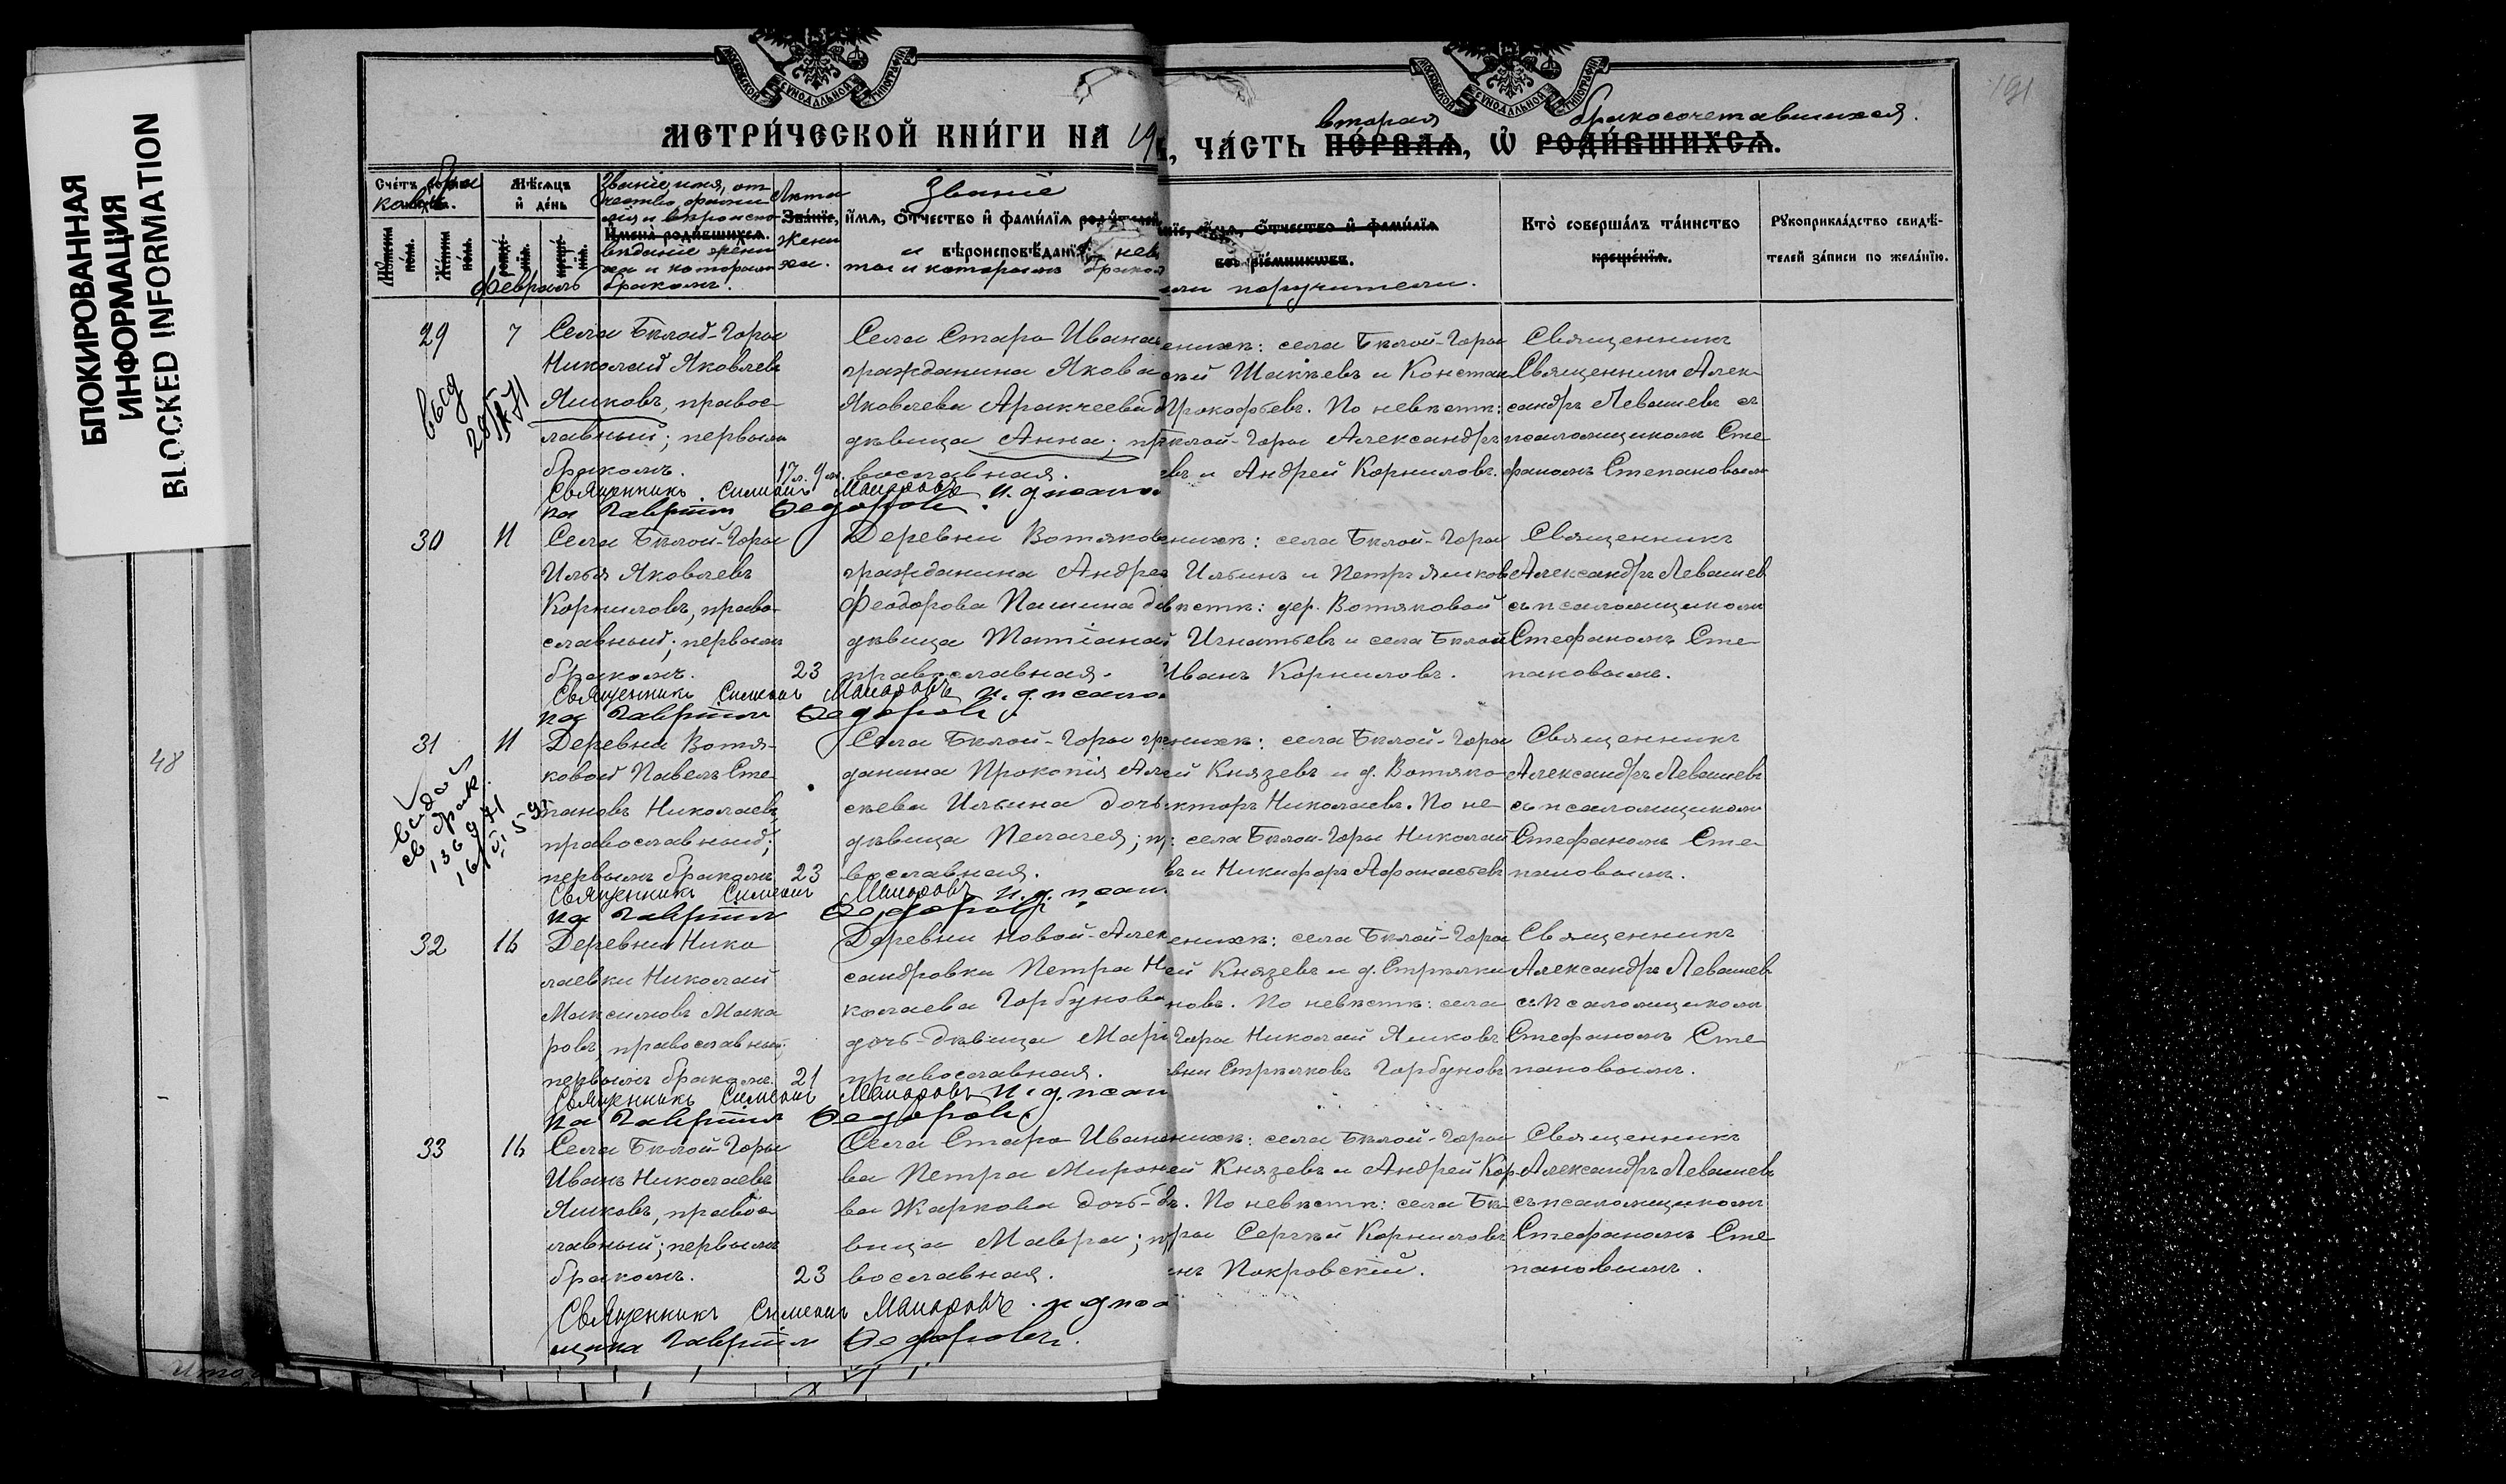 БЛОКИРОВАННАЯ
ИНФОРМАЦИЯ
BLOCKED INFORMATION
48
191
МОСКОВСКОЙ СѴНОДАЛЬНОЙ ТИПОГРАФІИ
МОСКОВСКОЙ СѴНОДАЛЬНОЙ ТИПОГРАФІИ
вторая бракосочетавшихся.
МЕТРИ́ЧЕСКОЙ КНИ́ГИ НА 19
, ЧА́СТЬ ПЕ́РВАѦ, Ѽ РОДИ́ВШИХСѦ.
Счетъ браковъ.
Мѣсяцъ и день
Февраль
Званіе, имя, отчество, фамилія и вѣроисповѣданіе жениха и которымъ бракомъ.
Имена родившихся.
Лѣта жениха.
Званіе,
Званіе
имя, отчество и фамилія родителей
и вѣроисповѣданіе невѣ
сты и которымъ браком
имя, отчество и фамилія
воспріемниковъ.
или поручители.
Кто совершалъ таинство
крещенія.
Рукоприкладство свидѣтелей записи по желанію.
29 7
Села Бѣлой-Горы
Николай Яковлевъ
Яшковъ, правос-
лавный; первымъ
бракомъ.
17 л. 9 м.
Села Старо-Ивана
гражданина Якова
Яковлева Аракчеева д
дѣвица Анна; пр
вославная.
енихѣ: села Бѣлой-Горы
кій Шакѣевъ и Констан
Прокофьевъ. По невѣстѣ:
ѣлой-Горы Александръ
евъ и Андрей Корниловъ.
Священникъ
Священникъ Алек-
сандръ Левашевъ съ
псаломщикомъ Сте
фаномъ Степановымъ
Священникъ Симеонъ Макаровъ И. д. псало
ка Гавріилъ Ѳедоровъ.
30 11
Села Бѣлой-Горы
Илья Яковлевъ
Корниловъ, право-
славный; первымъ
бракомъ.
23
Деревни Вотяков
гражданина Андрея
Феодорова Пашина д
дѣвица Татіана
православная.
енихѣ: села Бѣлой-Горы
Ильинъ и Петръ Яшков
вѣстѣ: дер. Вотяковой
й Игнатьевъ и села Бѣлой
Иванъ Корниловъ.
Священникъ
Александръ Левашев
съ псаломщикомъ
Стефаномъ Сте-
пановымъ.
Священникъ Симеонъ Макаровъ И. д. псало
ка Гавріилъ Ѳедоровъ.
31 11
Деревни Вотя-
ковой Павелъ Сте
пановъ Николаевъ,
православный;
первымъ бракомъ.
23
Села Бѣлой-Горы гр
данина Прокопія Але
сѣева Ильина дочь
дѣвица Пелагея; пр
вославная.
енихѣ: села Бѣлой-Горы
ей Князевъ и д. Вотяко
кторъ Николаевъ. По не
: села Бѣлой-Горы Николай
въ и Никифоръ Афанасьев
Священникъ
Александръ Левашевъ
съ псаломщикомъ
Стефаномъ Сте-
пановымъ.
Священникъ Симеонъ Макаровъ И. д. псал
ка Гавріилъ Ѳедоровъ.
32 16
Деревни Нико
лаевки Николай
Максимовъ Мака
ровъ, православный;
первымъ бракомъ.
21
Деревни Новой-Алек
сандровки Петра Н
колаева Горбунова
дочь-дѣвица Марі
православная.
енихѣ: села Бѣлой-Горы
ей Князевъ и д. Стрѣлки
новъ. По невѣстѣ: села
Горы Николай Яшковъ
вни Стрѣлковъ Горбуновъ
Священникъ
Александръ Левашев
съ Псаломщикомъ
Стефаномъ Сте
пановымъ.
Священникъ Симеонъ Макаровъ И. д. псал
ка Гавріилъ Ѳедоровъ
33 16
Села Бѣлой-Горы
Иванъ Николаевъ
Яшковъ, правос
лавный; первымъ
бракомъ.
23
Села Старо-Иван
ва Петра Мирон
ва Жаркова дочь-дѣ
вица Мавра; пр
вославная.
енихѣ: села Бѣлой-Горы
ей Князевъ и Андрей Кор
въ. По невѣстѣ: села Бѣ
ры Сергѣй Корниловъ
нъ Покровскій.
Священникъ
Александръ Левашевъ
съ псаломщикомъ
Стефаномъ Сте
пановымъ.
Священникъ Симеонъ Макаровъ И д псал
мщика Гавріилъ Ѳедоровъ.